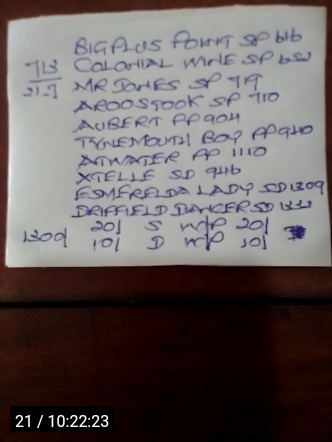 BIGPLUS POINT SP 616
713 COLONIAL WINE SP 652
21-7 MR JONES SP 719
AROOSTOOK SP 710
AUBERT PP 904
TYNEMOUTH BOY PP 940
ATWATER PP 1110
XTELLE SD 946
ESMERELDA LADY SD 1309
DRIFFIELD DANCER SD 1333
1309/ 20/ S W/P 20/
10/ D W/P 10/
21 / 10:22:23